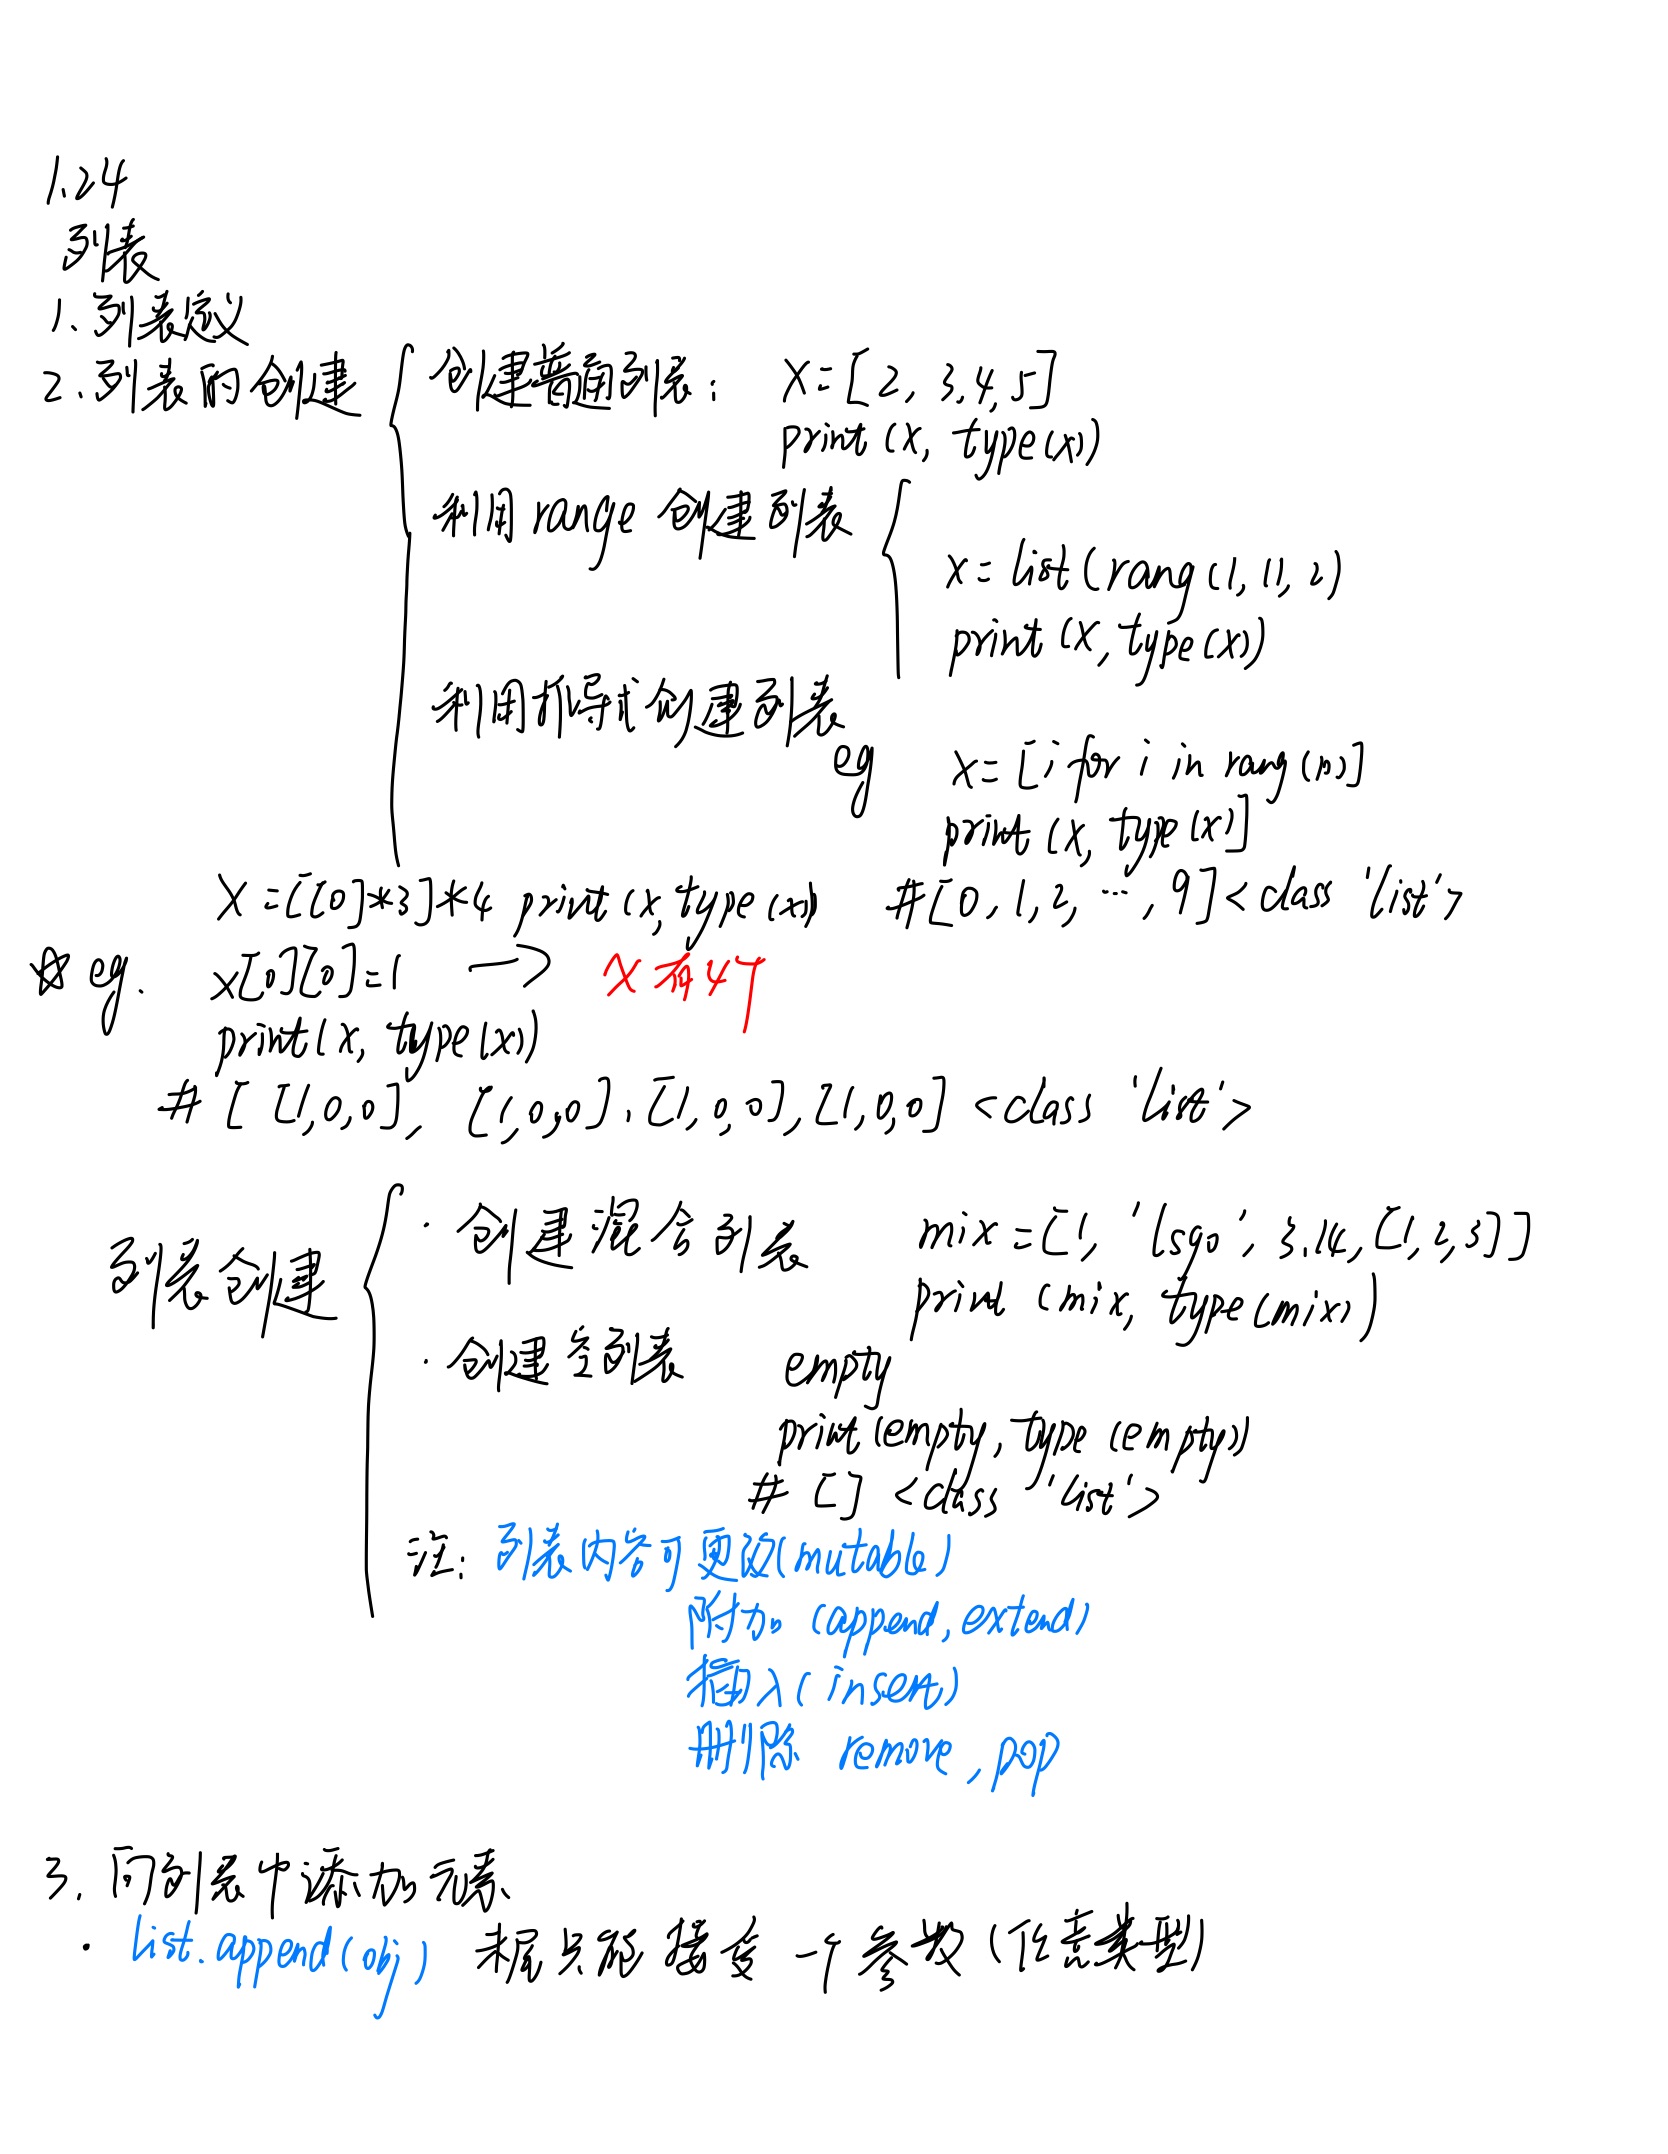 1.24
列表
1、列表定义
2、列表的创建
创建普通列表： X=[2, 3,4,5]
print(X, type(x))
利用range 创建列表
x=list(rang(1,11,2)
print(X,type(X))
利用推导式创建列表
eg x=[i for i in rang(10)]
print(X, type(x)]
X=[[0]*3]*4 print(x,type(x)) #[0,1,2,…,9]<class 'list'>
☆eg. x[0][0]=1 → X有4个
print(x, type(x))
#[ [1,0,0], [1,0,0],[1,0,0],[1,0,0] <class 'list'>
列表创建
·创建混合列表 mix=[1, 'lsgo', 3.14,[1,2,3]]
print (mix, type(mix))
·创建空列表 empty
print(empty,type(empty))
# [] <class 'list'>
注：列表内容可更改(mutable)
附加 (append,extend)
插入(insert)
删除 remove,pop
3. 向列表中添加元素
· list.append(obj) 末尾只能接受一个参数(任意类型)